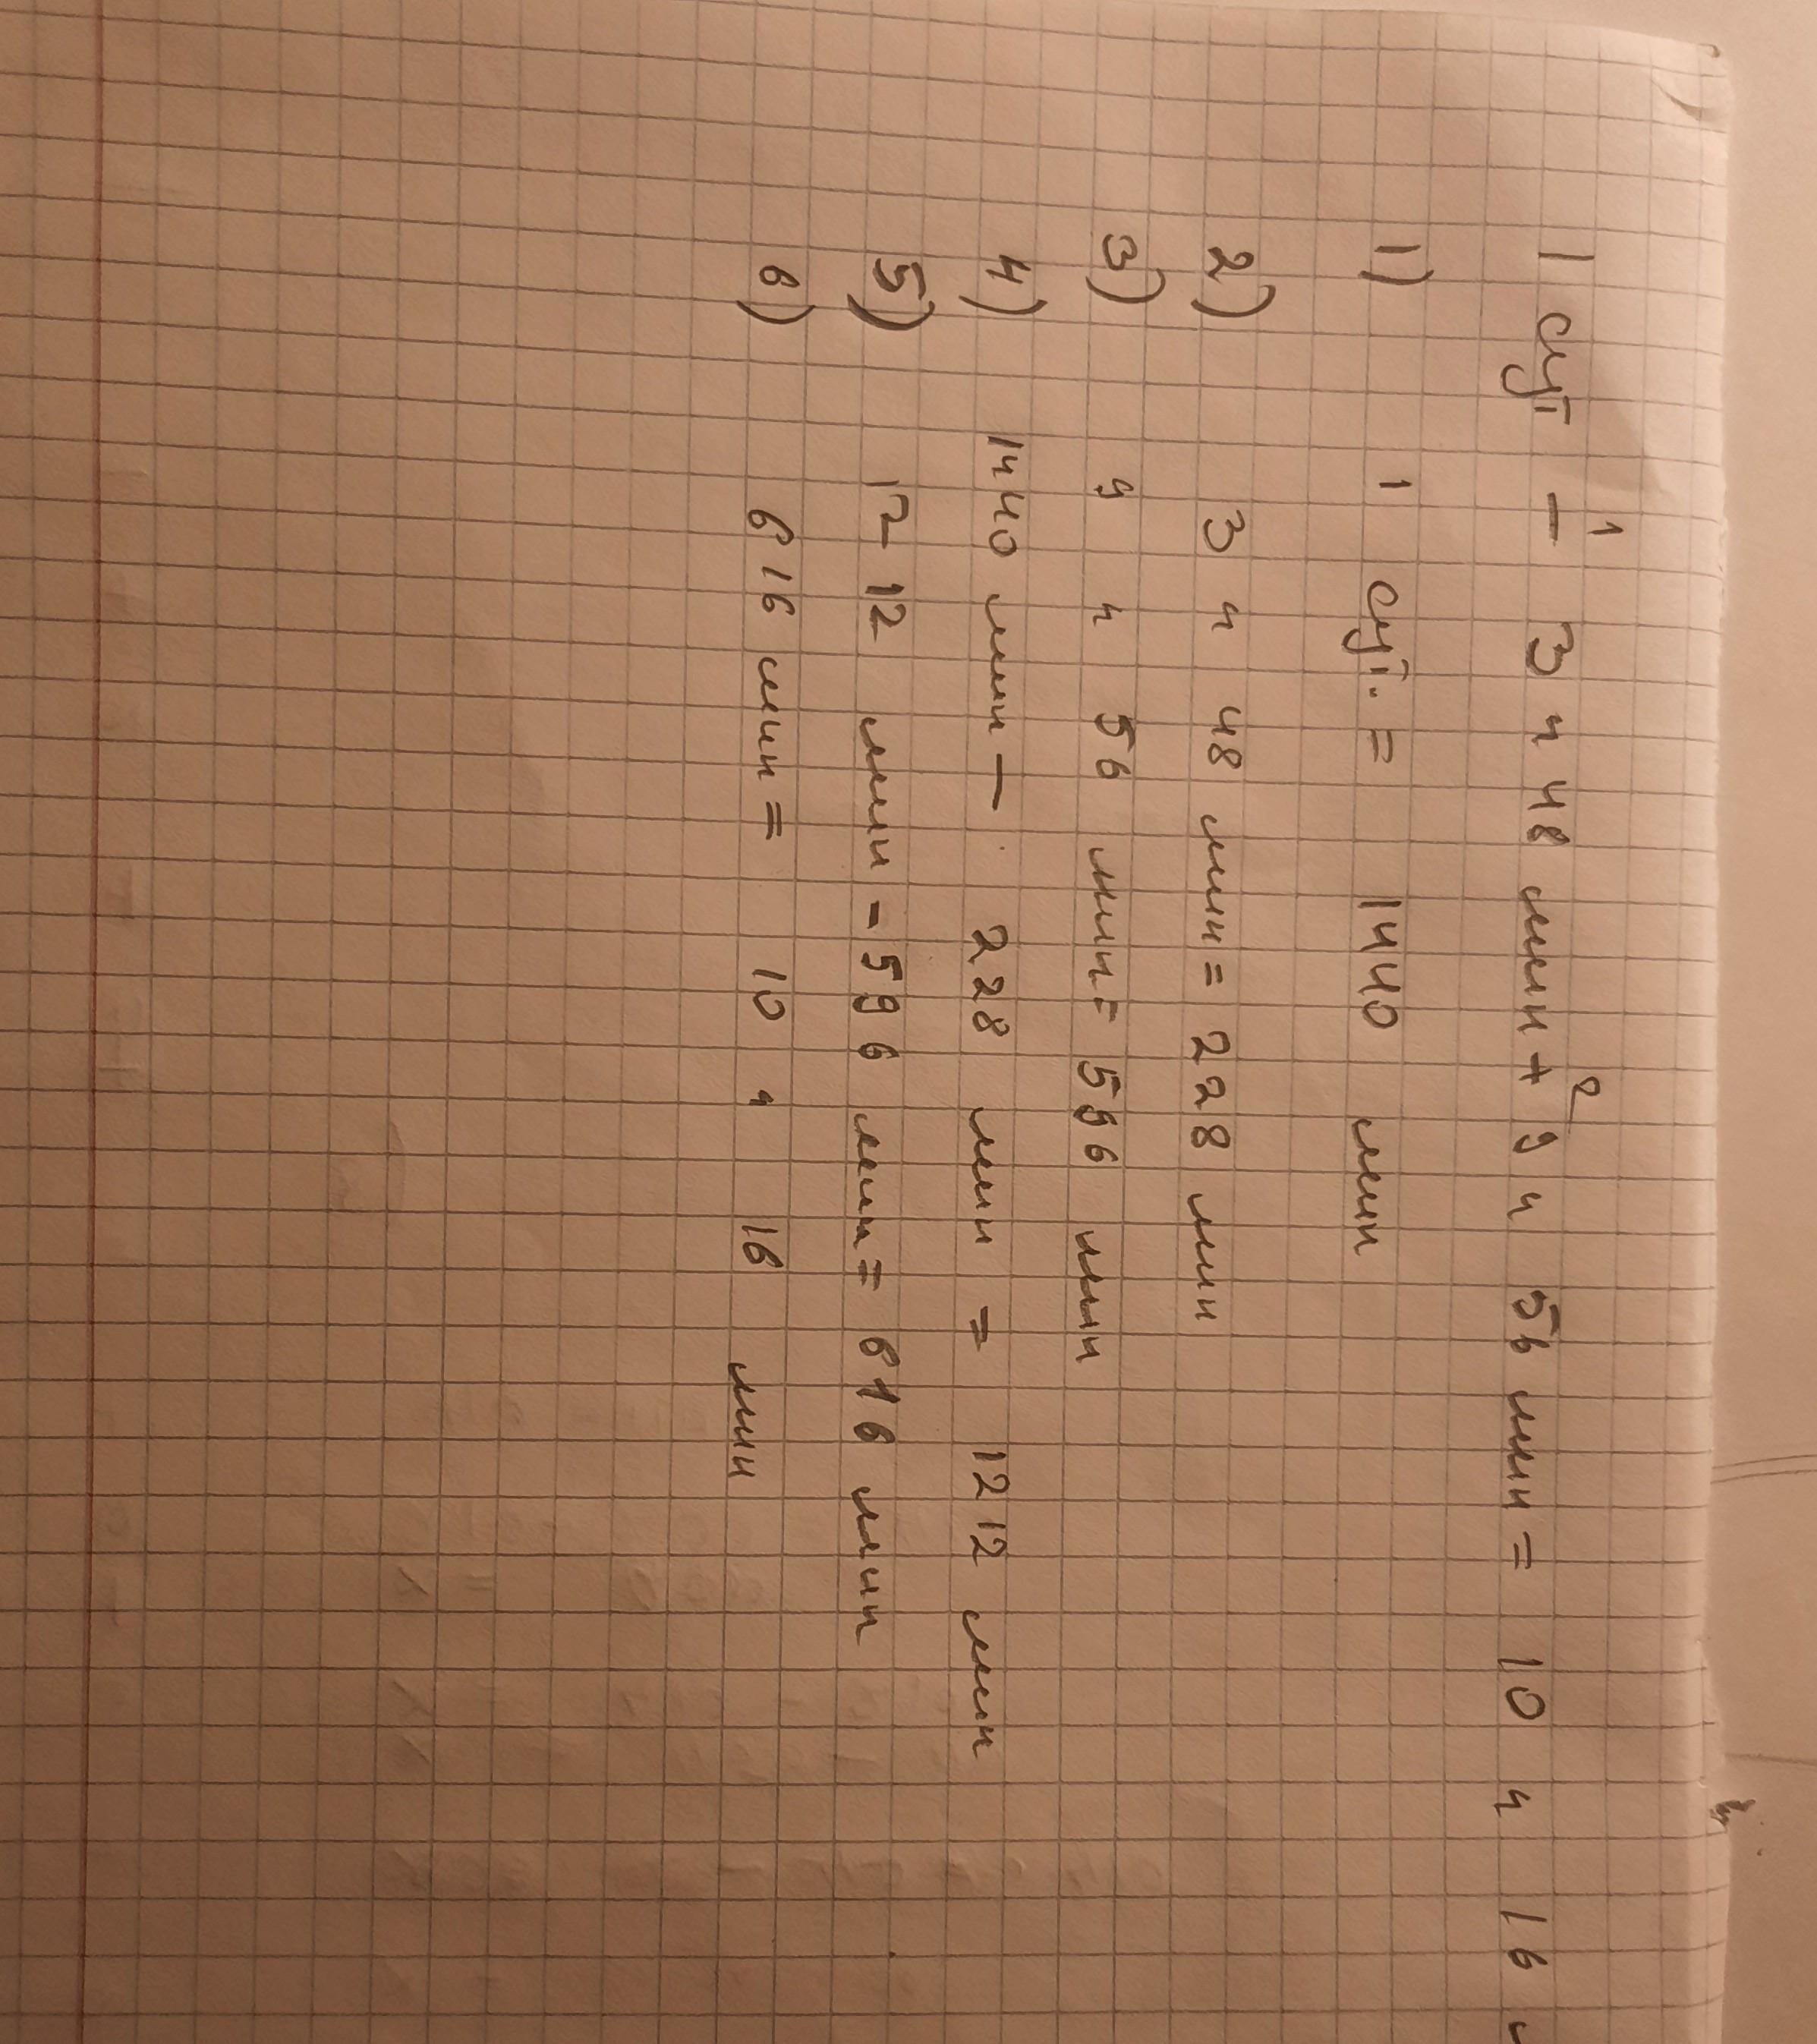 1 2
1 сут - 3 ч 48 мин + 9 ч 56 мин = 10 ч 16
1) 1 сут. = 1440 мин
2) 3 ч 48 мин = 228 мин
3) 9 ч 56 мин = 596 мин
4) 1440 мин - 228 мин = 1212 мин
5) 1212 мин - 596 мин = 616 мин
6) 616 мин = 10 ч 16 мин